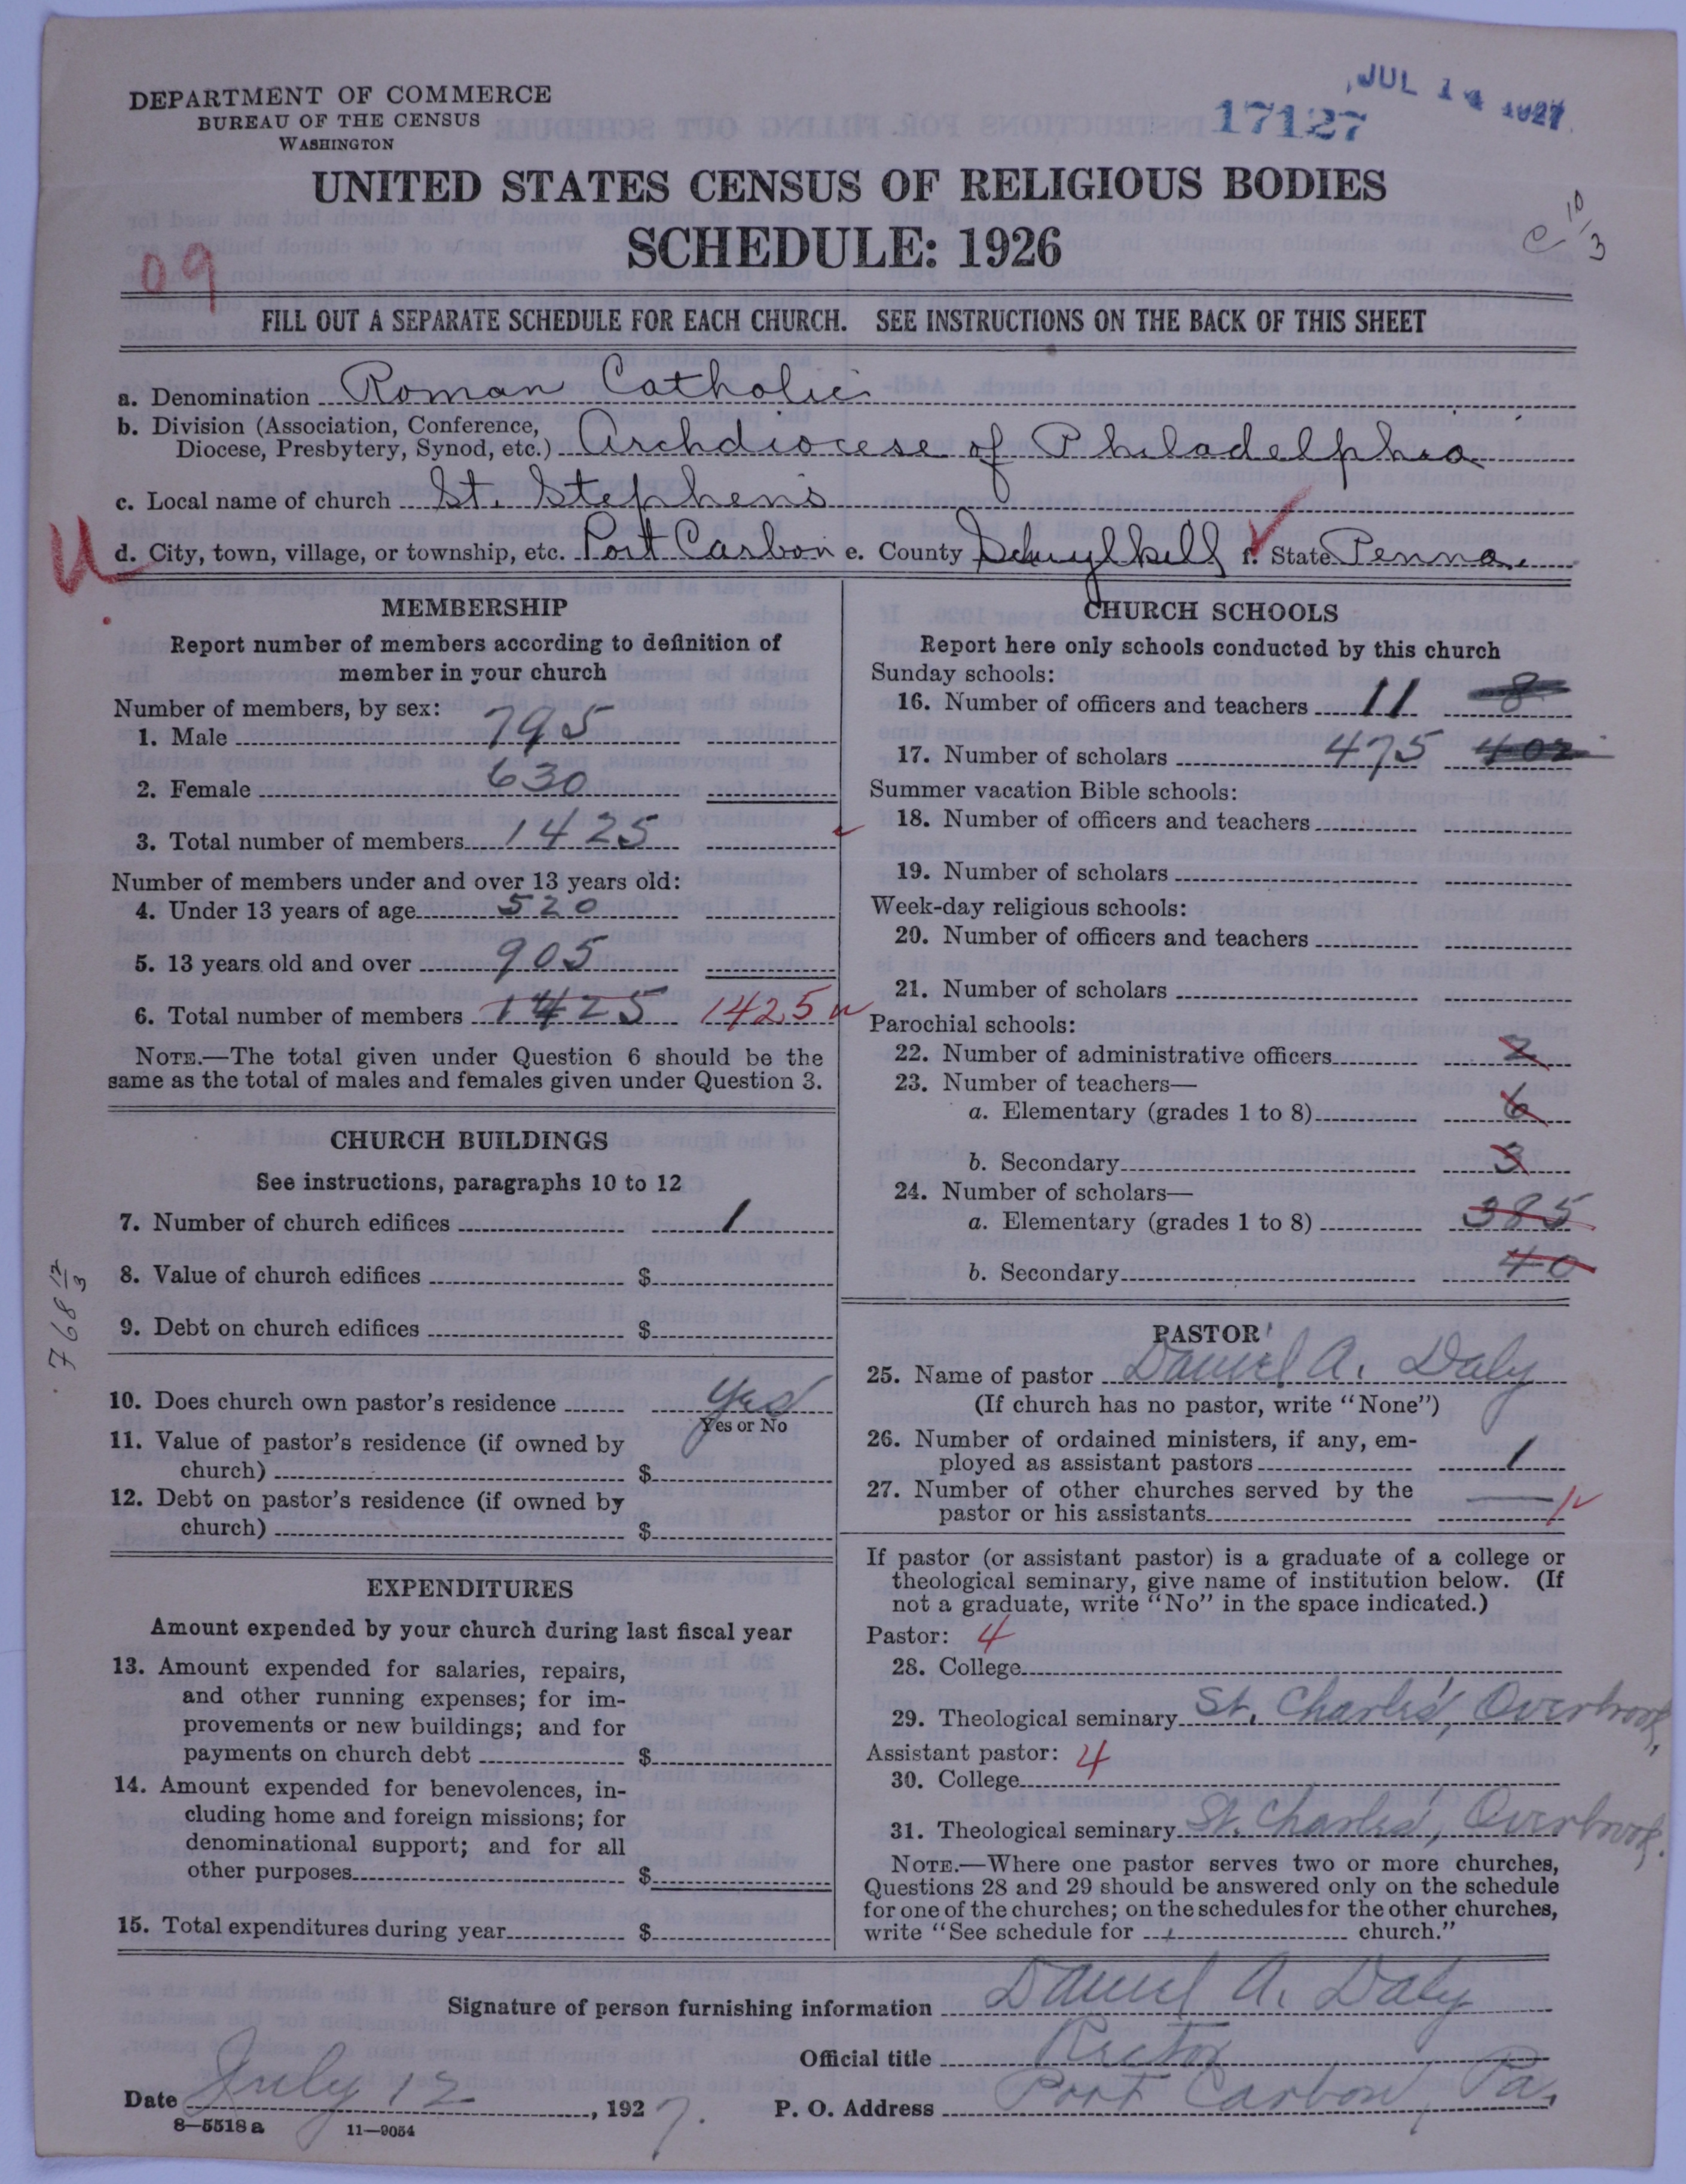 DEPARTMENT OF COMMERCE
BUREAU OF THE CENSUS
WASHINGTON
17127
JUL 14 1927
UNITED STATES CENSUS OF RELIGIOUS BODIES
SCHEDULE: 1926
C 10/3
09
FILL OUT A SEPARATE SCHEDULE FOR EACH CHURCH. SEE INSTRUCTIONS ON THE BACK OF THIS SHEET
a. Denomination Roman Catholic
b. Division (Association, Conference,
Diocese, Presbytery, Synod, etc.) Archdiocese of Philadelphia
c. Local name of church St. Stephen's
d. City, town, village, or township, etc. Port Carbon e. County Schuylkill f. State Penna.
MEMBERSHIP
Report number of members according to definition of
member in your church
Number of members, by sex:
1. Male 795
2. Female 630
3. Total number of members 1425
Number of members under and over 13 years old:
4. Under 13 years of age 520
5. 13 years old and over 905
6. Total number of members 1425 1425
NOTE.—The total given under Question 6 should be the
same as the total of males and females given under Question 3.
CHURCH BUILDINGS
See instructions, paragraphs 10 to 12
7. Number of church edifices 1
8. Value of church edifices $
9. Debt on church edifices $
10. Does church own pastor's residence Yes
Yes or No
11. Value of pastor's residence (if owned by
church) $
12. Debt on pastor's residence (if owned by
church) $
EXPENDITURES
Amount expended by your church during last fiscal year
13. Amount expended for salaries, repairs,
and other running expenses; for im-
provements or new buildings; and for
payments on church debt $
14. Amount expended for benevolences, in-
cluding home and foreign missions; for
denominational support; and for all
other purposes $
15. Total expenditures during year $
CHURCH SCHOOLS
Report here only schools conducted by this church
Sunday schools:
16. Number of officers and teachers 11 8
17. Number of scholars 475 402
Summer vacation Bible schools:
18. Number of officers and teachers
19. Number of scholars
Week-day religious schools:
20. Number of officers and teachers
21. Number of scholars
Parochial schools:
22. Number of administrative officers 2
23. Number of teachers—
a. Elementary (grades 1 to 8) 6
b. Secondary 3
24. Number of scholars—
a. Elementary (grades 1 to 8) 385
b. Secondary 40
PASTOR
25. Name of pastor Daniel A. Daly
(If church has no pastor, write "None")
26. Number of ordained ministers, if any, em-
ployed as assistant pastors 1
27. Number of other churches served by the
pastor or his assistants
If pastor (or assistant pastor) is a graduate of a college or
theological seminary, give name of institution below. (If
not a graduate, write "No" in the space indicated.)
Pastor: 4
28. College
29. Theological seminary St. Charles', Overbrook,
Assistant pastor: 4
30. College
31. Theological seminary St. Charles', Overbrook.
NOTE.—Where one pastor serves two or more churches,
Questions 28 and 29 should be answered only on the schedule
for one of the churches; on the schedules for the other churches,
write "See schedule for church."
Signature of person furnishing information Daniel A. Daly
Official title Rector
Date July 12, 1927. P. O. Address Port Carbon, Pa.
8—5518a 11—9054